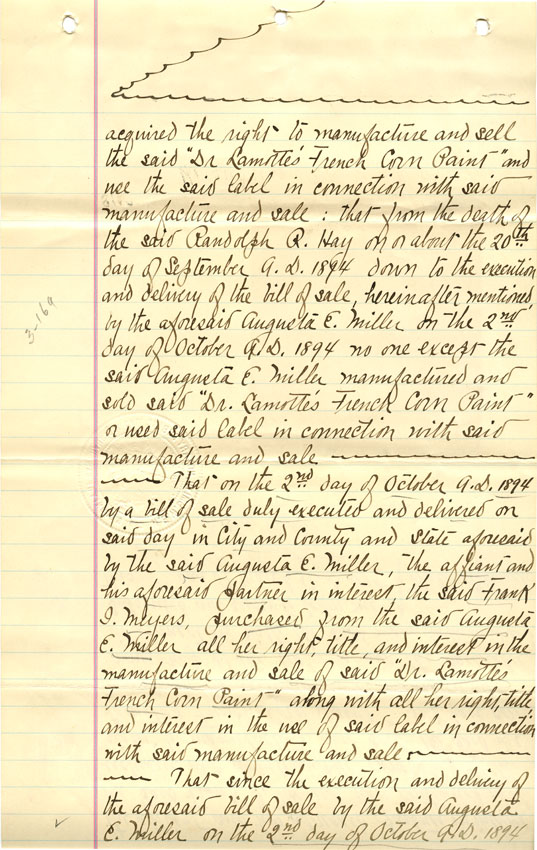 acquired the right to manufacture and sell
the said "Dr Lamotte's French Corn Paint" and
use the said label in connection with said
manufacture and sale : that from the death of
the said Randolph R. Hay on or about the 20th
day of September A.D. 1894 down to the execution
and delivery of the bill of sale, hereinafter mentioned,
by the aforesaid Augusta E. Miller on the 2nd
day of October A.D. 1894 no one except the
said Augusta E. Miller manufactured and
sold said "Dr. Lamotte's French Corn Paint"
or used said label in connection with said
manufacture and sale
That on the 2nd day of October A.D. 1894
by a bill of sale duly executed and delivered on
said day in City and County and State aforesaid
by the said Augusta E. Miller, the affiant and
his aforesaid partner in interest, the said Frank
I. Meyers, purchased from the said Augusta
E. Miller all her right, title, and interest in the
manufacture and sale of said "Dr. Lamotte's
French Corn Paint" along with all her right, title
and interest in the use of said label in connection
with said manufacture and sale.
That since the execution and delivery of
the aforesaid bill of sale by the said Augusta
E. Miller on the 2nd day of October A.D. 1894
3-169